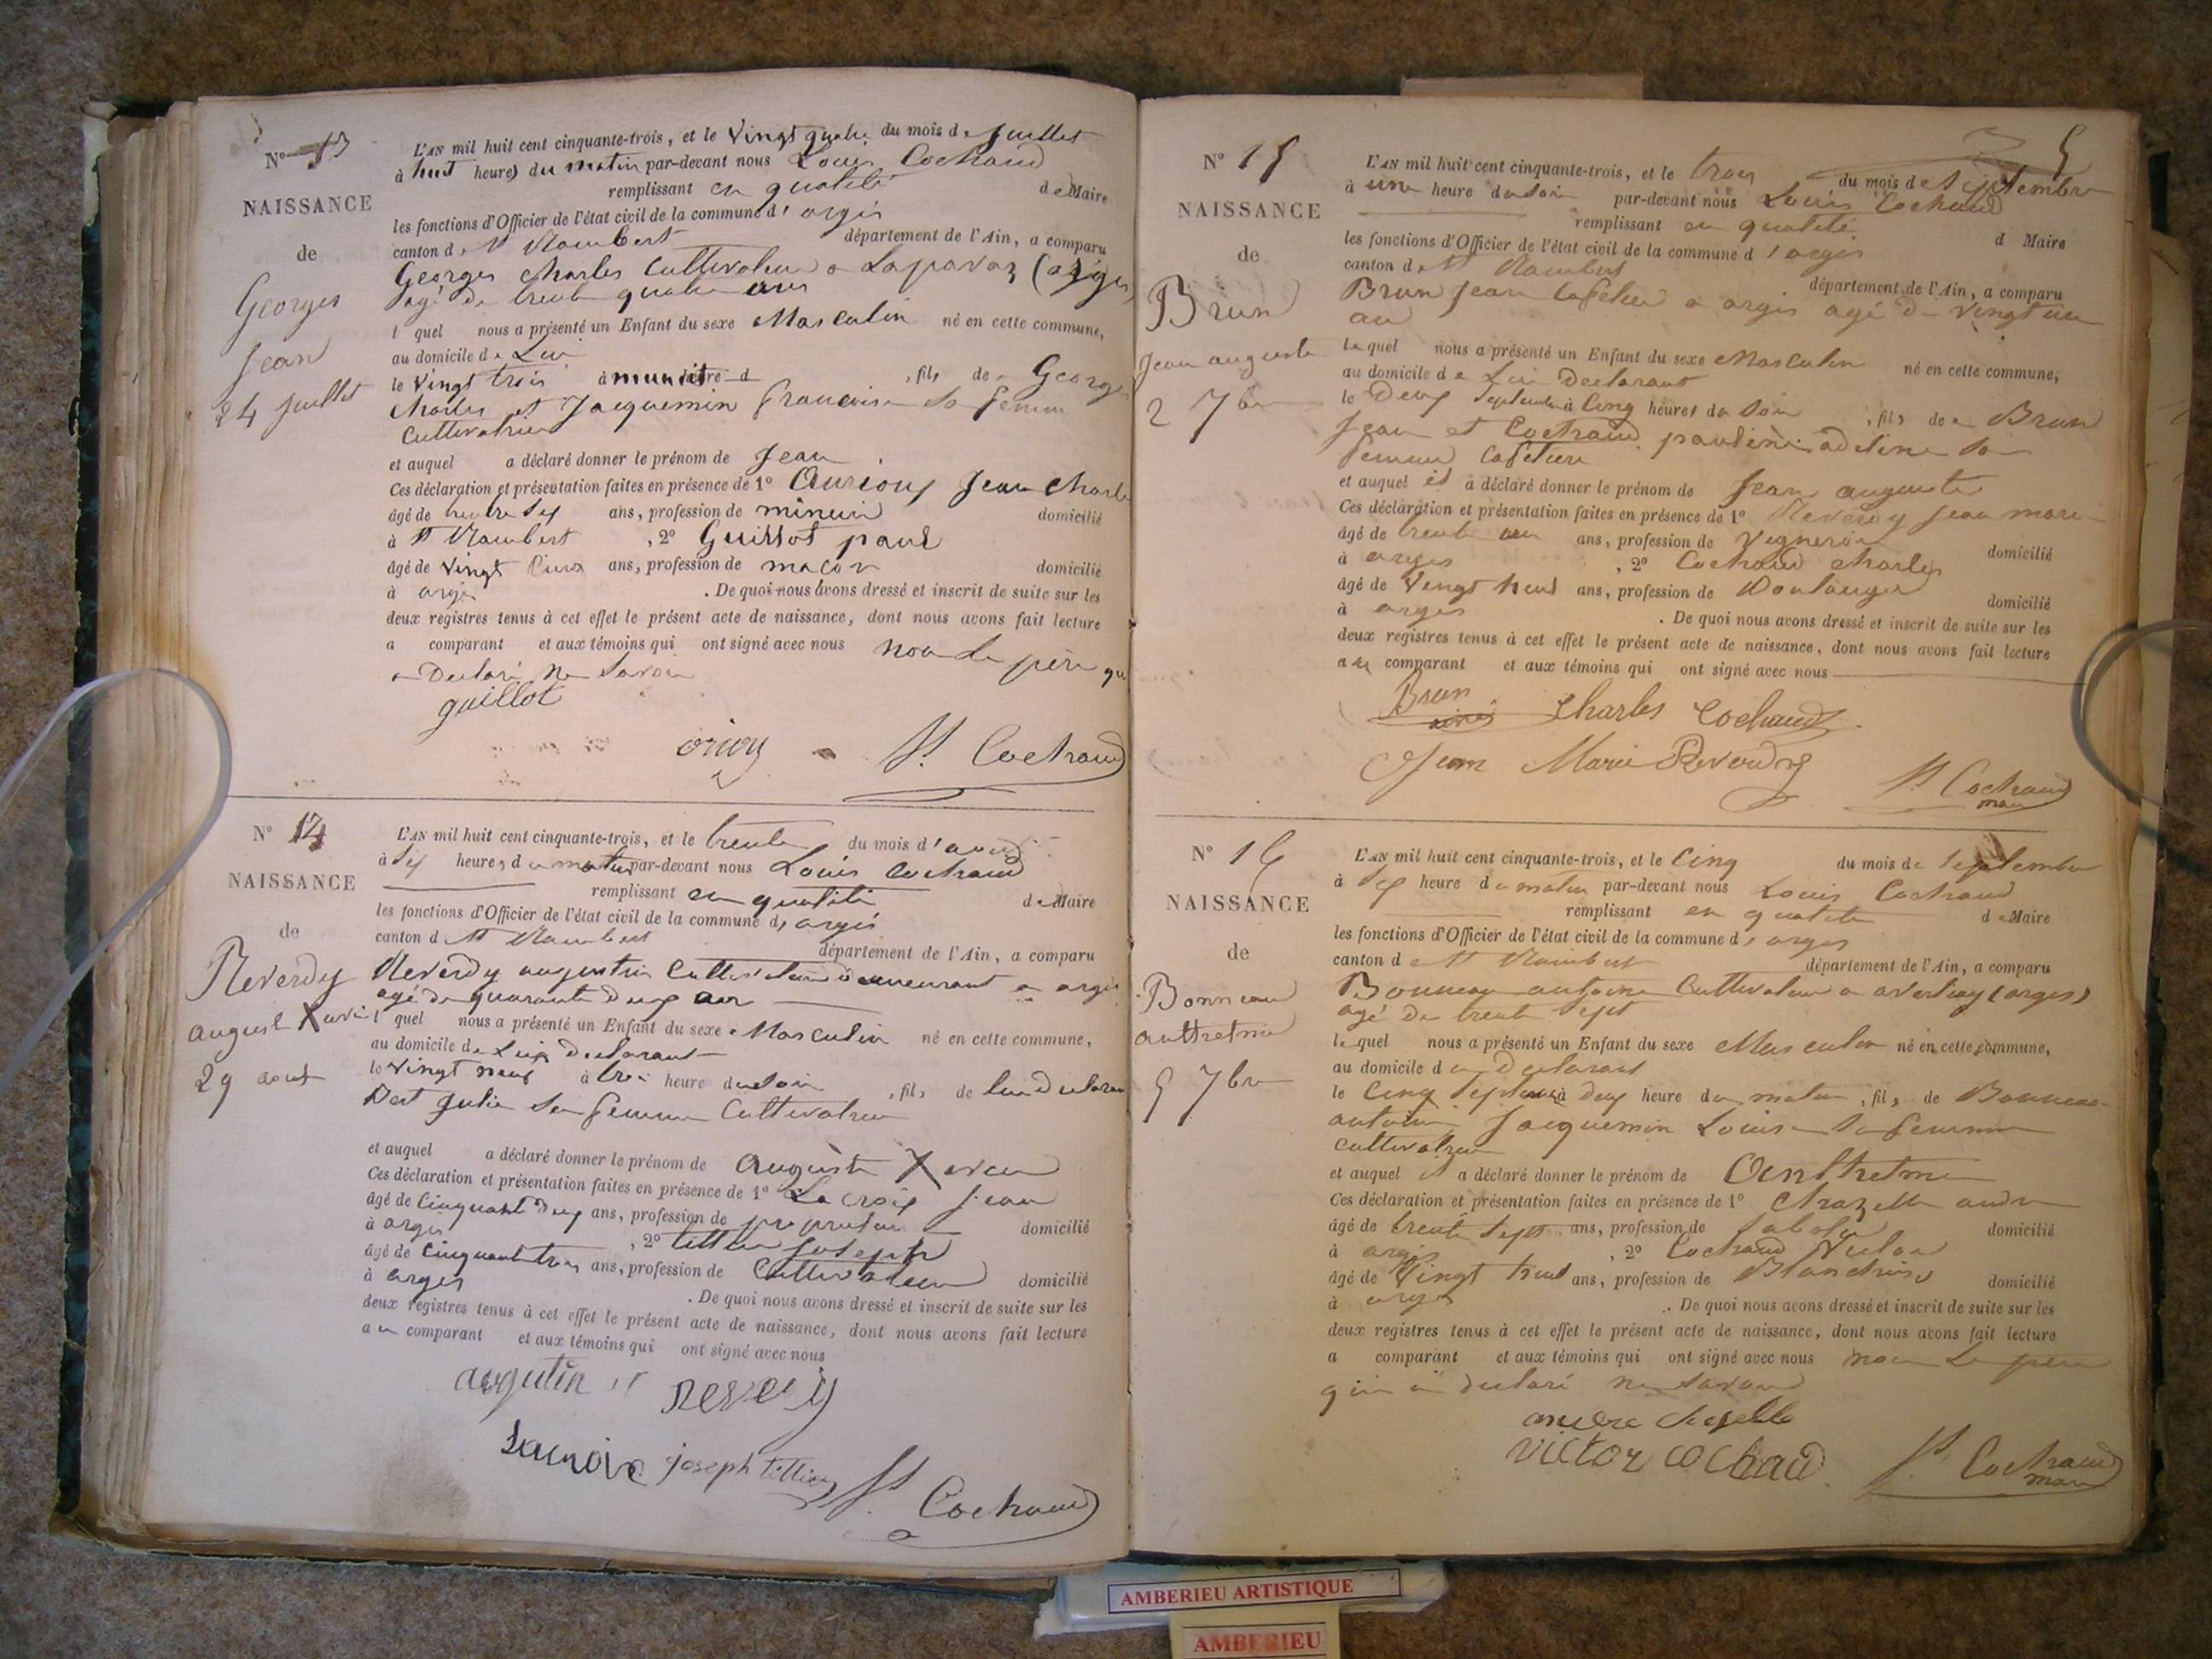 N° 13
NAISSANCE
de
Georges
Jean
24 juillet
L'AN mil huit cent cinquante-trois, et le Vingt quatre du mois de juillet
à huit heures du matin par-devant nous Louis Cochaud
remplissant en qualité de Maire
les fonctions d'Officier de l'état civil de la commune d'argis
canton de St Rambert département de l'Ain, a comparu
Georges Charles Cultivateur a Laparvaz (argis)
agé de trente quatre ans
l quel nous a présenté un Enfant du sexe Masculin né en cette commune,
au domicile de Lui
le Vingt trois à minuit heure d , fils de Georges
Charles et Jacquemin francoise sa femme
Cultivatrice
et auquel a déclaré donner le prénom de Jean
Ces déclaration et présentation faites en présence de 1° Jean Charle
âgé de ans, profession de mineur domicilié
à St Rambert , 2° Guillot paul
âgé de Vingt ans, profession de macon domicilié
à argis . De quoi nous avons dressé et inscrit de suite sur les
deux registres tenus à cet effet le présent acte de naissance, dont nous avons fait lecture
a comparant et aux témoins qui ont signé avec nous non le père qui
a Declaré ne Savoir
guillot
St Cochaud
N° 14
NAISSANCE
de
Reverdy
august Xavier
29 aout
L'AN mil huit cent cinquante-trois, et le trente du mois d'aout
à six heures du matin par-devant nous Louis Cochaud
remplissant en qualité de Maire
les fonctions d'Officier de l'état civil de la commune d'argis
canton d St Rambert département de l'Ain, a comparu
Reverdy augustin Cultivateur demeurant a argis
agé de quarante deux ans
l quel nous a présenté un Enfant du sexe Masculin né en cette commune,
au domicile de Lui declarant
le Vingt neuf à trois heure du soir , fils de lui declarant
Julie sa femme Cultivatrice
et auquel a déclaré donner le prénom de Auguste Xavier
Ces déclaration et présentation faites en présence de 1° La croix Jean
âgé de Cinquante deux ans, profession de domicilié
à argis , 2° Joseph
âgé de Cinquante trois ans, profession de Cultivateur domicilié
à argis . De quoi nous avons dressé et inscrit de suite sur les
deux registres tenus à cet effet le présent acte de naissance, dont nous avons fait lecture
au comparant et aux témoins qui ont signé avec nous
joseph
St Cochaud
N° 15
NAISSANCE
de
Brun
Jean auguste
2 7bre
5
L'AN mil huit cent cinquante-trois, et le trois du mois de Septembre
à une heure du soir par-devant nous Louis Cochaud
remplissant en qualité d Maire
les fonctions d'Officier de l'état civil de la commune d'argis
canton d St Rambert département de l'Ain, a comparu
Brun Jean Cafetier a argis agé de Vingt un
an
lequel nous a présenté un Enfant du sexe Masculin né en cette commune,
au domicile de Lui Declarant
le Deux Septembre à Cinq heures du soir , fils de Brun
Jean et Cochaud pauline adeline sa
femme Cafetiere
et auquel il a déclaré donner le prénom de Jean auguste
Ces déclaration et présentation faites en présence de 1° Reverdy Jean marie
âgé de trente un ans, profession de Vigneron domicilié
à argis , 2° Cochaud Charles
âgé de Vingt neuf ans, profession de Boulanger domicilié
à argis . De quoi nous avons dressé et inscrit de suite sur les
deux registres tenus à cet effet le présent acte de naissance, dont nous avons fait lecture
au comparant et aux témoins qui ont signé avec nous
Brun Charles Cochaud
Jean Marie Reverdy
St Cochaud
maire
N° 16
NAISSANCE
de
Bonneau
5 7bre
L'AN mil huit cent cinquante-trois, et le Cinq du mois de Septembre
à heure du matin par-devant nous Louis Cochaud
remplissant en qualité de Maire
les fonctions d'Officier de l'état civil de la commune d'argis
canton de St Rambert département de l'Ain, a comparu
Bonneau antoine Cultivateur a (argis)
agé de trente sept
lequel nous a présenté un Enfant du sexe Masculin né en cette commune,
au domicile du declarant
le Cinq Septembre à deux heure du matin , fils de Bonneau
antoine Jacquemin Louise sa femme
Cultivatrice
et auquel il a déclaré donner le prénom de
Ces déclaration et présentation faites en présence de 1° Chazelle andre
âgé de trente sept ans, profession de domicilié
à argis , 2° Cochaud Victor
âgé de Vingt ans, profession de domicilié
à argis . De quoi nous avons dressé et inscrit de suite sur les
deux registres tenus à cet effet le présent acte de naissance, dont nous avons fait lecture
a comparant et aux témoins qui ont signé avec nous non le père
qui a declaré ne savoir
victor cochaud
St Cochaud
maire
AMBERIEU ARTISTIQUE
AMBERIEU